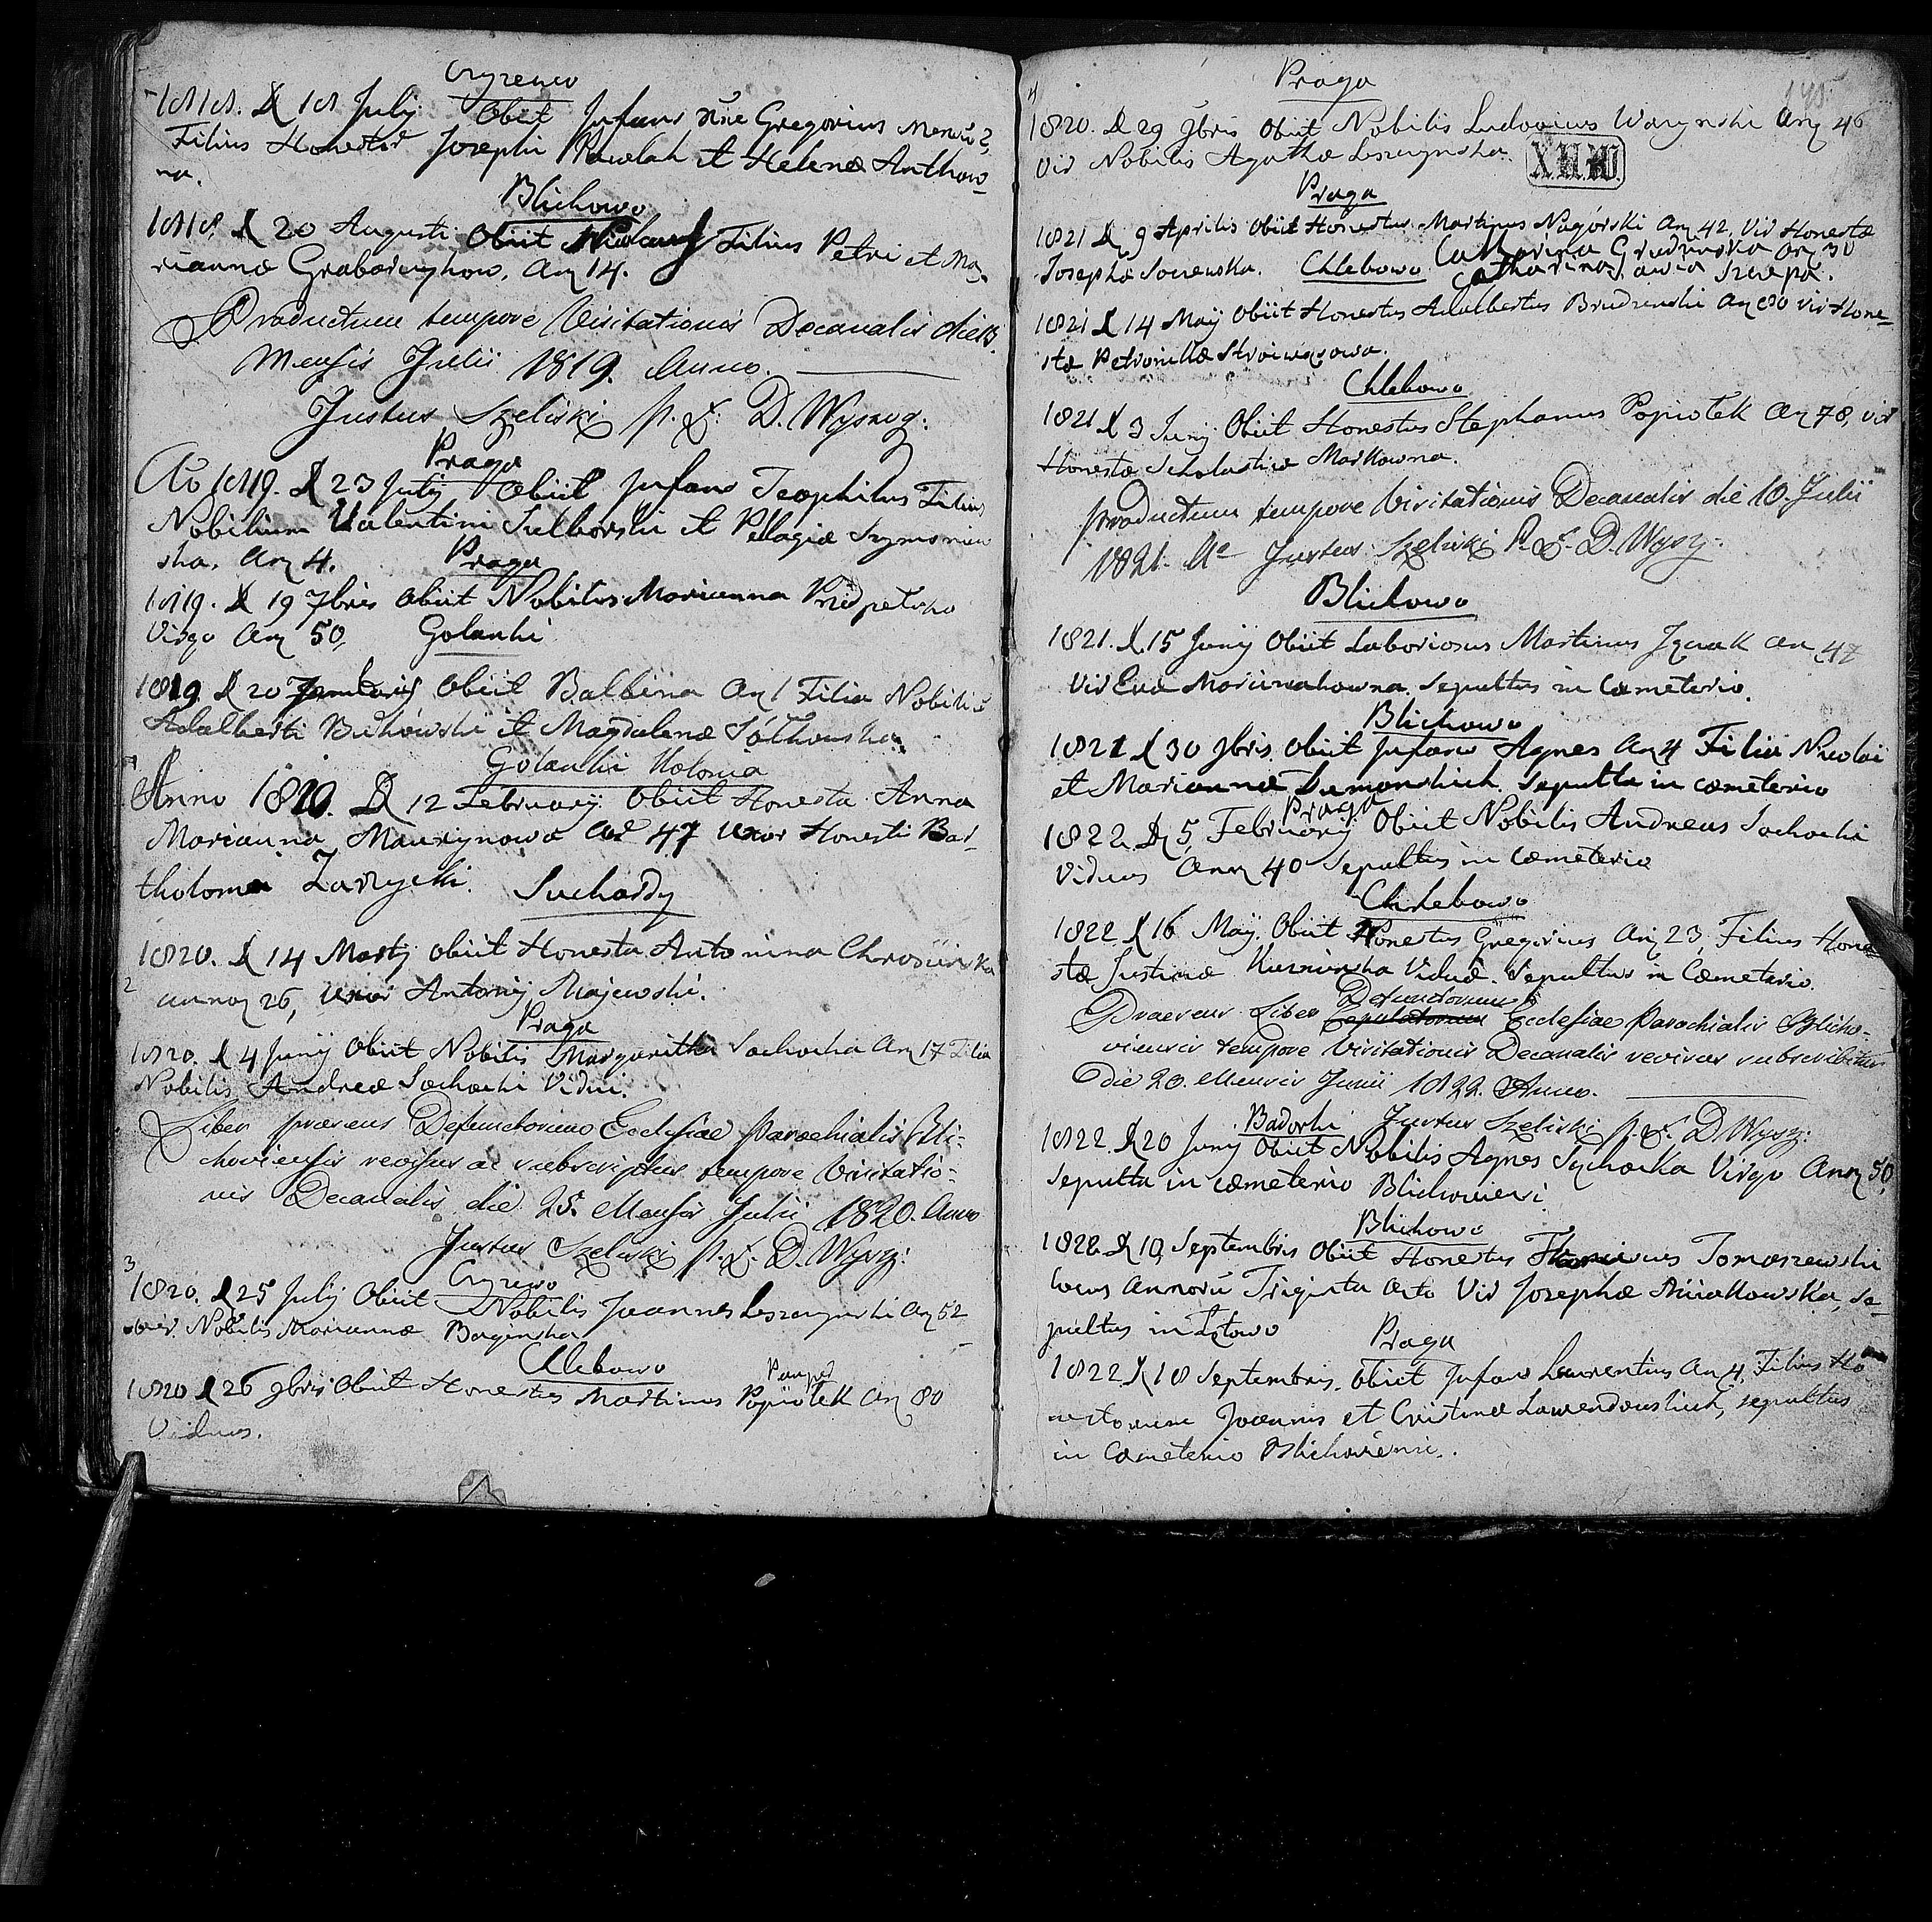 1818. D 18 July Obiit Infans nñe Gregorius Mensiũ 2,
Filius Honestor Josephi Pawlak et Helenæ Anthow
na.
Blichowo
1818, D 20 Augusti Obiit Filius Petri et Ma-
riannæ Graborczykow, An 14.
Productum tempore Visitationis Decanalis die
Mensis Julii 1819. Anno.
Justus Szeliski p. D. Wyszog:
Praga
Ao 1819. D 23 July Obiit Infans Teophilus Filius
Nobilium Valentini et Pelagiæ Szymoniew
ska, An 4.
Praga
1819. D 19 7bris Obiit Nobilis Marianna
Virgo An 50,
Golanki
1819 D 20 Januarij Obiit Balbina An 1 Filia Nobiliũ
Adalberti et Magdalenæ
Golanki Kolonia
Anno 1820. D 12 February Obiit Honesta Anna
Marianna 47 Uxor Honesti Bar-
tholomei Zarzycki.
Suchardy
1820. D 14 Martij Obiit Honesta Antonina
2 annor 26, Uxor Antonij Majewski.
Praga
1820. D 4 Junij Obiit Nobilis Margaritha Sochocka An 17 Filia
Nobilis Andreæ Sochocki Vidui.
Liber præsens Defunctorum Ecclesiae Parochialis Bli-
choviensis revisus ac subscriptus tempore Visitatio-
nis Decanalis die 25. Mensis Julii 1820. Anno
Justus Szeliski p. D. Wysz:
3
1820. D 25 July Obiit Nobilis Joannes Leszczynski An 52
vir Nobilis Mariannæ Bogenska
Chlebowo
Pauper
1820 D 26 9bris Obiit Honestus Martinus Popiołek An 80
Viduus.
4 Praga
145.
1820. D 29 9bris Obiit Nobilis Ludovicus Warynski An 46
Vir Nobilis Agathæ Leszczynska.
Praga
1821 D 9 Aprilis Obiit Honestus Martinus Nagórski An 42, Vir Honestæ
Catharina Grudzinska An 30
Josephæ
Chlebowo
1821 D 14 Maij Obiit Honestus Adalbertus Brudzinski An 80 vir Hone-
stæ Petronellæ
Chlebowo
1821 D 3 Junij Obiit Honestus Stephanus Popiołek An 78, vir
Honestæ Scholasticæ Markowna.
Productum tempore Visitationis Decanalis die 10. Julii
1821. Ao Justus Szeliski P. D. Wysz:
Blichowo
1821. D 15 Junij Obiit Laboriosus Martinus An 47
Vir Eva Sepultus in Cæmeterio.
Blichowo
1821 D 30 9bris Obiit Infans Agnes An 4 Filia Nicolai
et Mariannæ Sepulta in cæmeterio
Praga
1822. D 5, February Obiit Nobilis Andreas Sochocki
Viduus Ann 40 Sepultus in Cæmeterio
Chlebowo
1822 D 16 Maij Obiit Honestus Gregorius An 23, Filius Hone
stæ Justinæ Viduæ. Sepultus in Cæmeterio.
Defunctorum
Praesens Liber Copulatorum Ecclesiae Parochialis Blicho-
viensis tempore Visitationis Decanalis revisus subscribitur
die 20. Mensis Junii 1822. Anno.
Justus Szeliski p. D Wysz:
Badorki
1822. D 20 Junij Obiit Nobilis Agnes Sychocka Virgo Ann 50,
Sepulta in cæmeterio Blichoviensi
Blichowo
1822. D 10, Septembris Obiit Honestus Tomaszewski
Annorũ Triginta Octo Vir Josephæ se-
pultus in
Praga
1822 D 18 Septembris. Obiit Infans Laurentius An 4 Filius Ho
nestorum Joannis et Cristinæ sepultus
in Cæmeterio Blichoviensi.